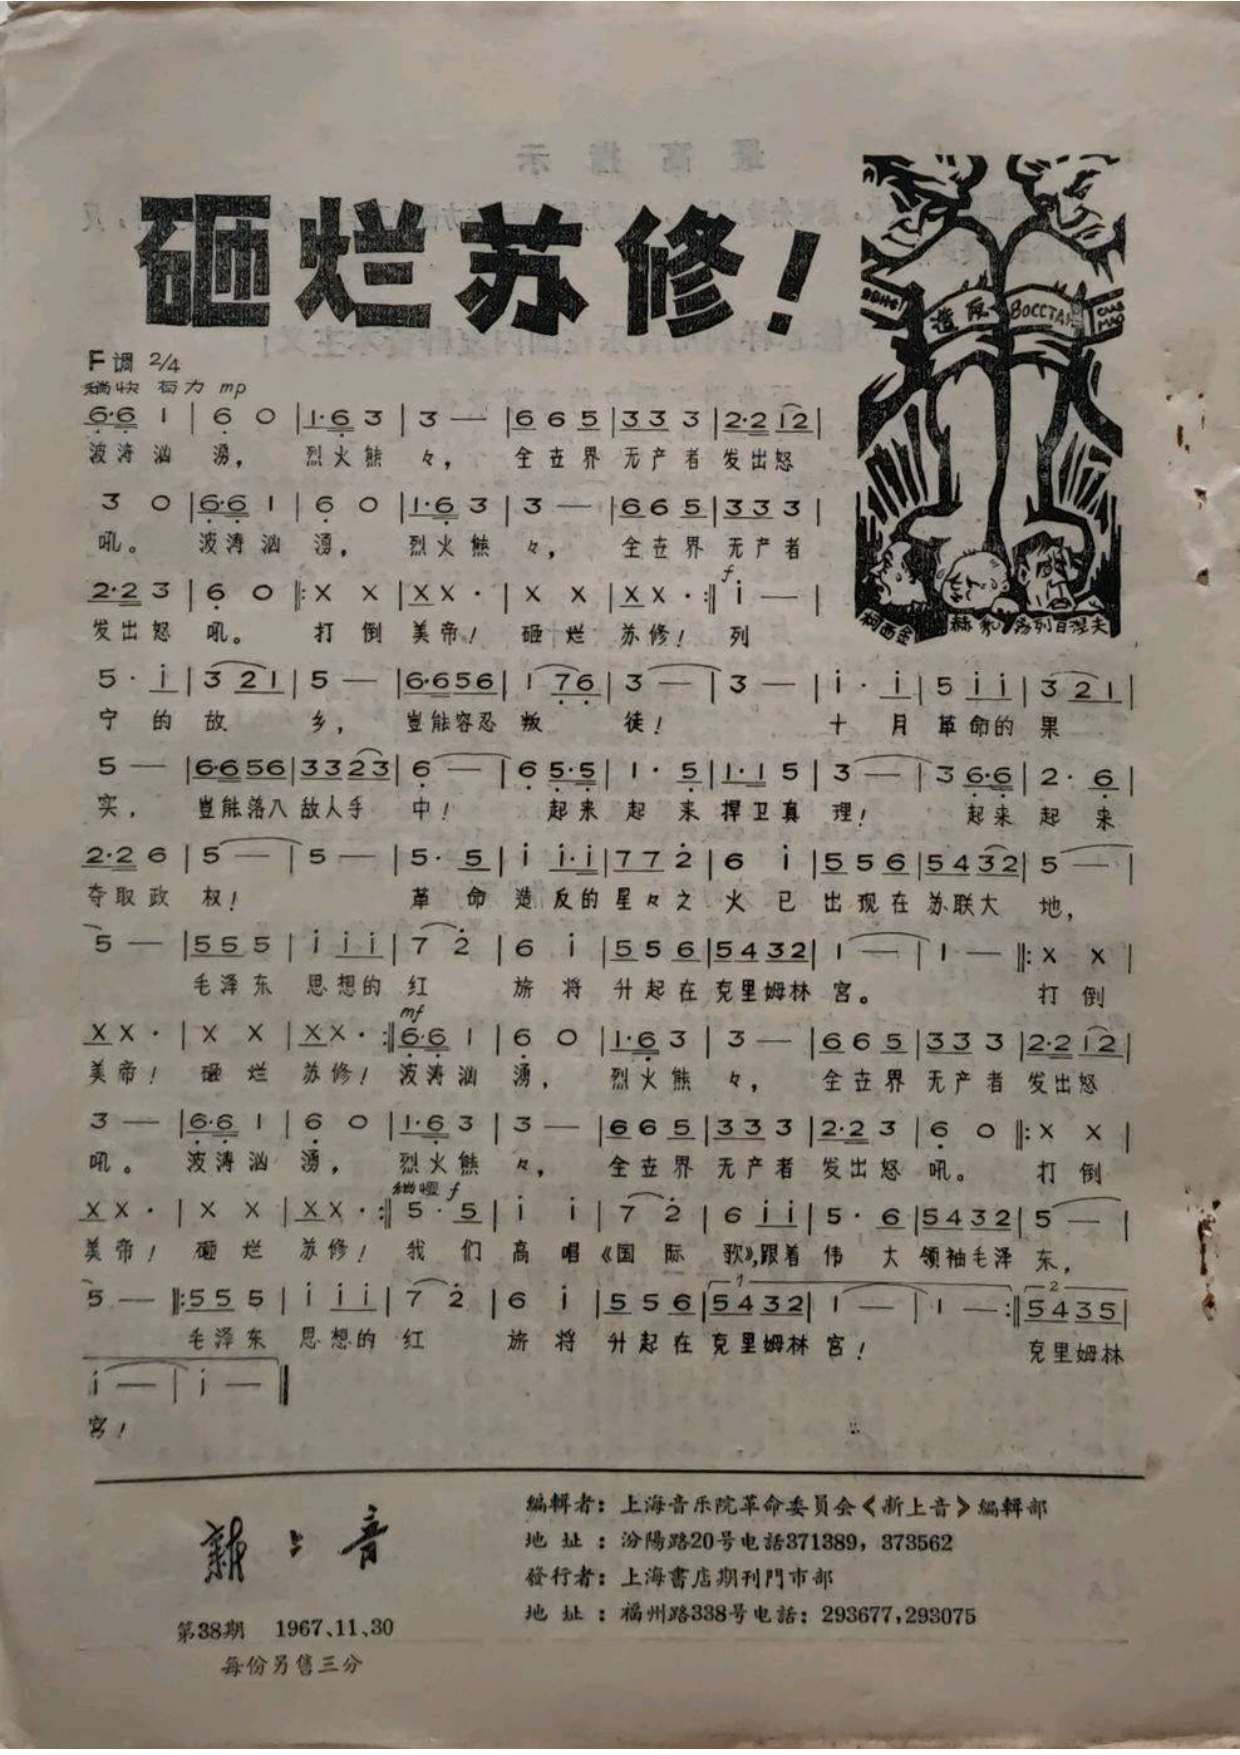 砸烂苏修!
F调 2/4
稍快 有力 mp
6·6 1 | 6 0 | 1·6 3 | 3 — | 6 6 5 | 3 3 3 | 2·2 1 2 |
波涛汹 湧, 烈火熊 々, 全世界 无产者 发出怒
3 0 | 6·6 1 | 6 0 | 1·6 3 | 3 — | 6 6 5 | 3 3 3 |
吼。 波涛汹 湧, 烈火熊 々, 全世界 无产者
2·2 3 | 6 0 ‖: X X | X X · | X X | X X · :‖ f i — |
发出怒 吼。 打倒 美帝! 砸烂 苏修! 列
5 · i | 3 2 1 | 5 — | 6·6 5 6 | 1 7 6 | 3 — | 3 — | i · i | 5 i i | 3 2 1 |
宁 的 故 乡, 豈能容忍 叛 徒! 十 月 革命的 果
5 — | 6·6 5 6 | 3 3 2 3 | 6 — | 6 5·5 | 1 · 5 | 1·1 5 | 3 — | 3 6·6 | 2 · 6 |
实, 豈能落入 敌人手 中! 起来 起 来 捍卫真 理! 起来 起 来
2·2 6 | 5 — | 5 — | 5 · 5 | i i·i | 7 7 2 | 6 i | 5 5 6 | 5 4 3 2 | 5 — |
夺取政 权! 革 命 造反的 星々之 火 已 出现在 苏联大 地,
5 — | 5 5 5 | i i i | 7 2 | 6 i | 5 5 6 | 5 4 3 2 | 1 — | 1 — ‖: X X |
毛泽东 思想的 红 旗 将 升起在 克里姆林 宫。 打 倒
X X · | X X | X X · :‖ mf 6·6 1 | 6 0 | 1·6 3 | 3 — | 6 6 5 | 3 3 3 | 2·2 1 2 |
美帝! 砸 烂 苏修! 波涛汹 湧, 烈火熊 々, 全世界 无产者 发出怒
3 — | 6·6 1 | 6 0 | 1·6 3 | 3 — | 6 6 5 | 3 3 3 | 2·2 3 | 6 0 ‖: X X |
吼。 波涛汹 湧, 烈火熊 々, 全世界 无产者 发出怒 吼。 打 倒
稍慢 f
X X · | X X | X X · :‖ 5 · 5 | i i | 7 2 | 6 i i | 5 · 6 | 5 4 3 2 | 5 — |
美帝! 砸 烂 苏修! 我 们 高 唱《国 际 歌》,跟着 伟 大 领袖毛泽 东,
5 — ‖: 5 5 5 | i i i | 7 2 | 6 i | 5 5 6 | 1 5 4 3 2 | 1 — | 1 — :‖ 2 5 4 3 5 |
毛泽东 思想的 红 旗 将 升起在 克里姆林 宫! 克里姆林
i — | i — ‖
宫!
造反
ВОССТАН
柯西金 赫秃 勃列日涅夫
新上音
第38期 1967、11、30
每份另售三分
编辑者:上海音乐院革命委员会《新上音》编辑部
地址:汾陽路20号电話371389,373562
發行者:上海書店期刊門市部
地址:福州路338号电話:293677,293075